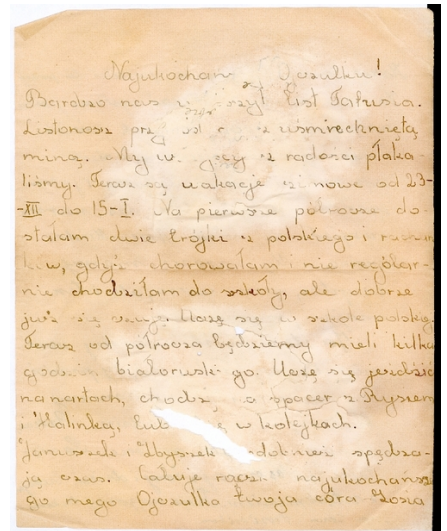 Najukochan szy Ojczulku!
Bardzo nas u szył list Tatusia.
Listonosz z uśmiechniętą
miną. My w z radości płaka
liśmy. Teraz są wakacje zimowe od 23-
-XII do 15-I. Na pierwsze półrocze do
stałam dwie trójki z polskiego i rachun
ków, gdyż chorowałam nie regular-
nie chodziłam do szkoły, ale dobrze
już się uczę. Uczę się w szkole polskiej
Teraz od półrocza będziemy mieli kilka
godzin białoruskiego. Uczę się jeździć
na nartach, chodzę na spacer z Rysiem
i Halinką, w kolejkach.
Januszek i Zbyszek spędza-
ją czas. Całuję rączki najukochańsze
go mego Ojczulka twoja córa Zosia